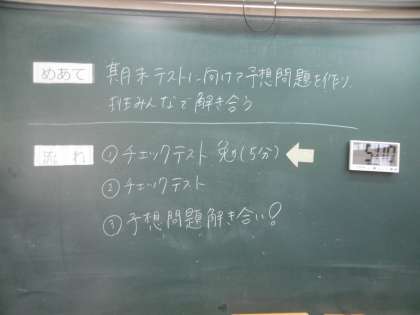 めあて 期末テストに向けて予想問題を作り、
みんなで解き合う
流れ ①チェックテスト勉(5分)
②チェックテスト
③予想問題解き合い?